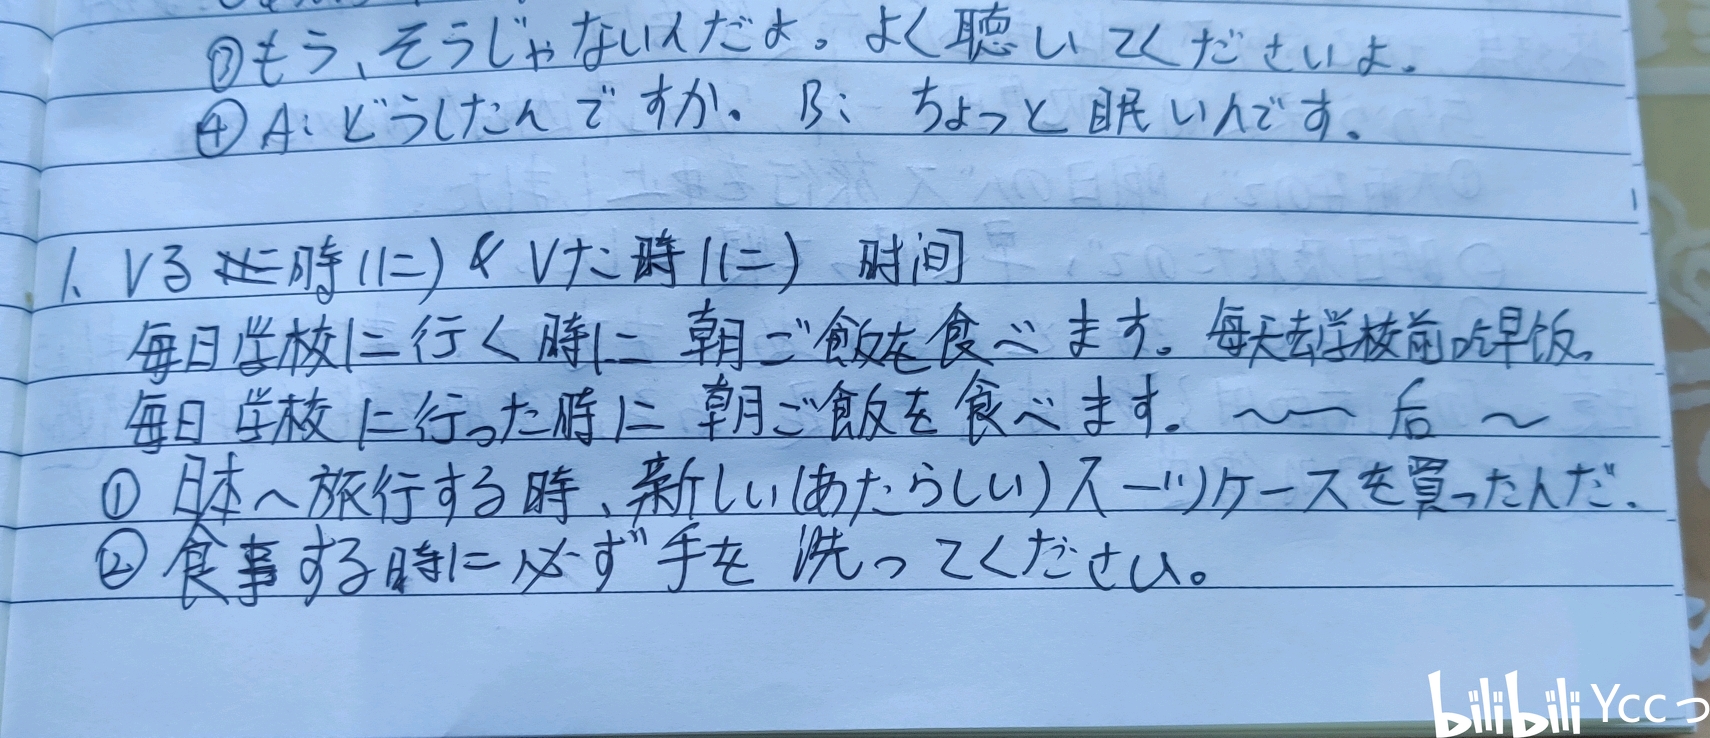 ③もう、そうじゃないんだよ。よく聴いてくださいよ。
④A:どうしたんですか。 B: ちょっと眠いんです。
1、Vる 時(に) & Vた時(に) 时间
毎日学校に行く時に 朝ご飯を食べます。每天去学校前吃早饭。
毎日 学校に行った時に 朝ご飯を食べます。 ~~ 后 ~
① 日本へ旅行する時、新しい(あたらしい)スーツケースを買ったんだ。
② 食事する時に必ず手を洗ってください。
bilibili Yccっ